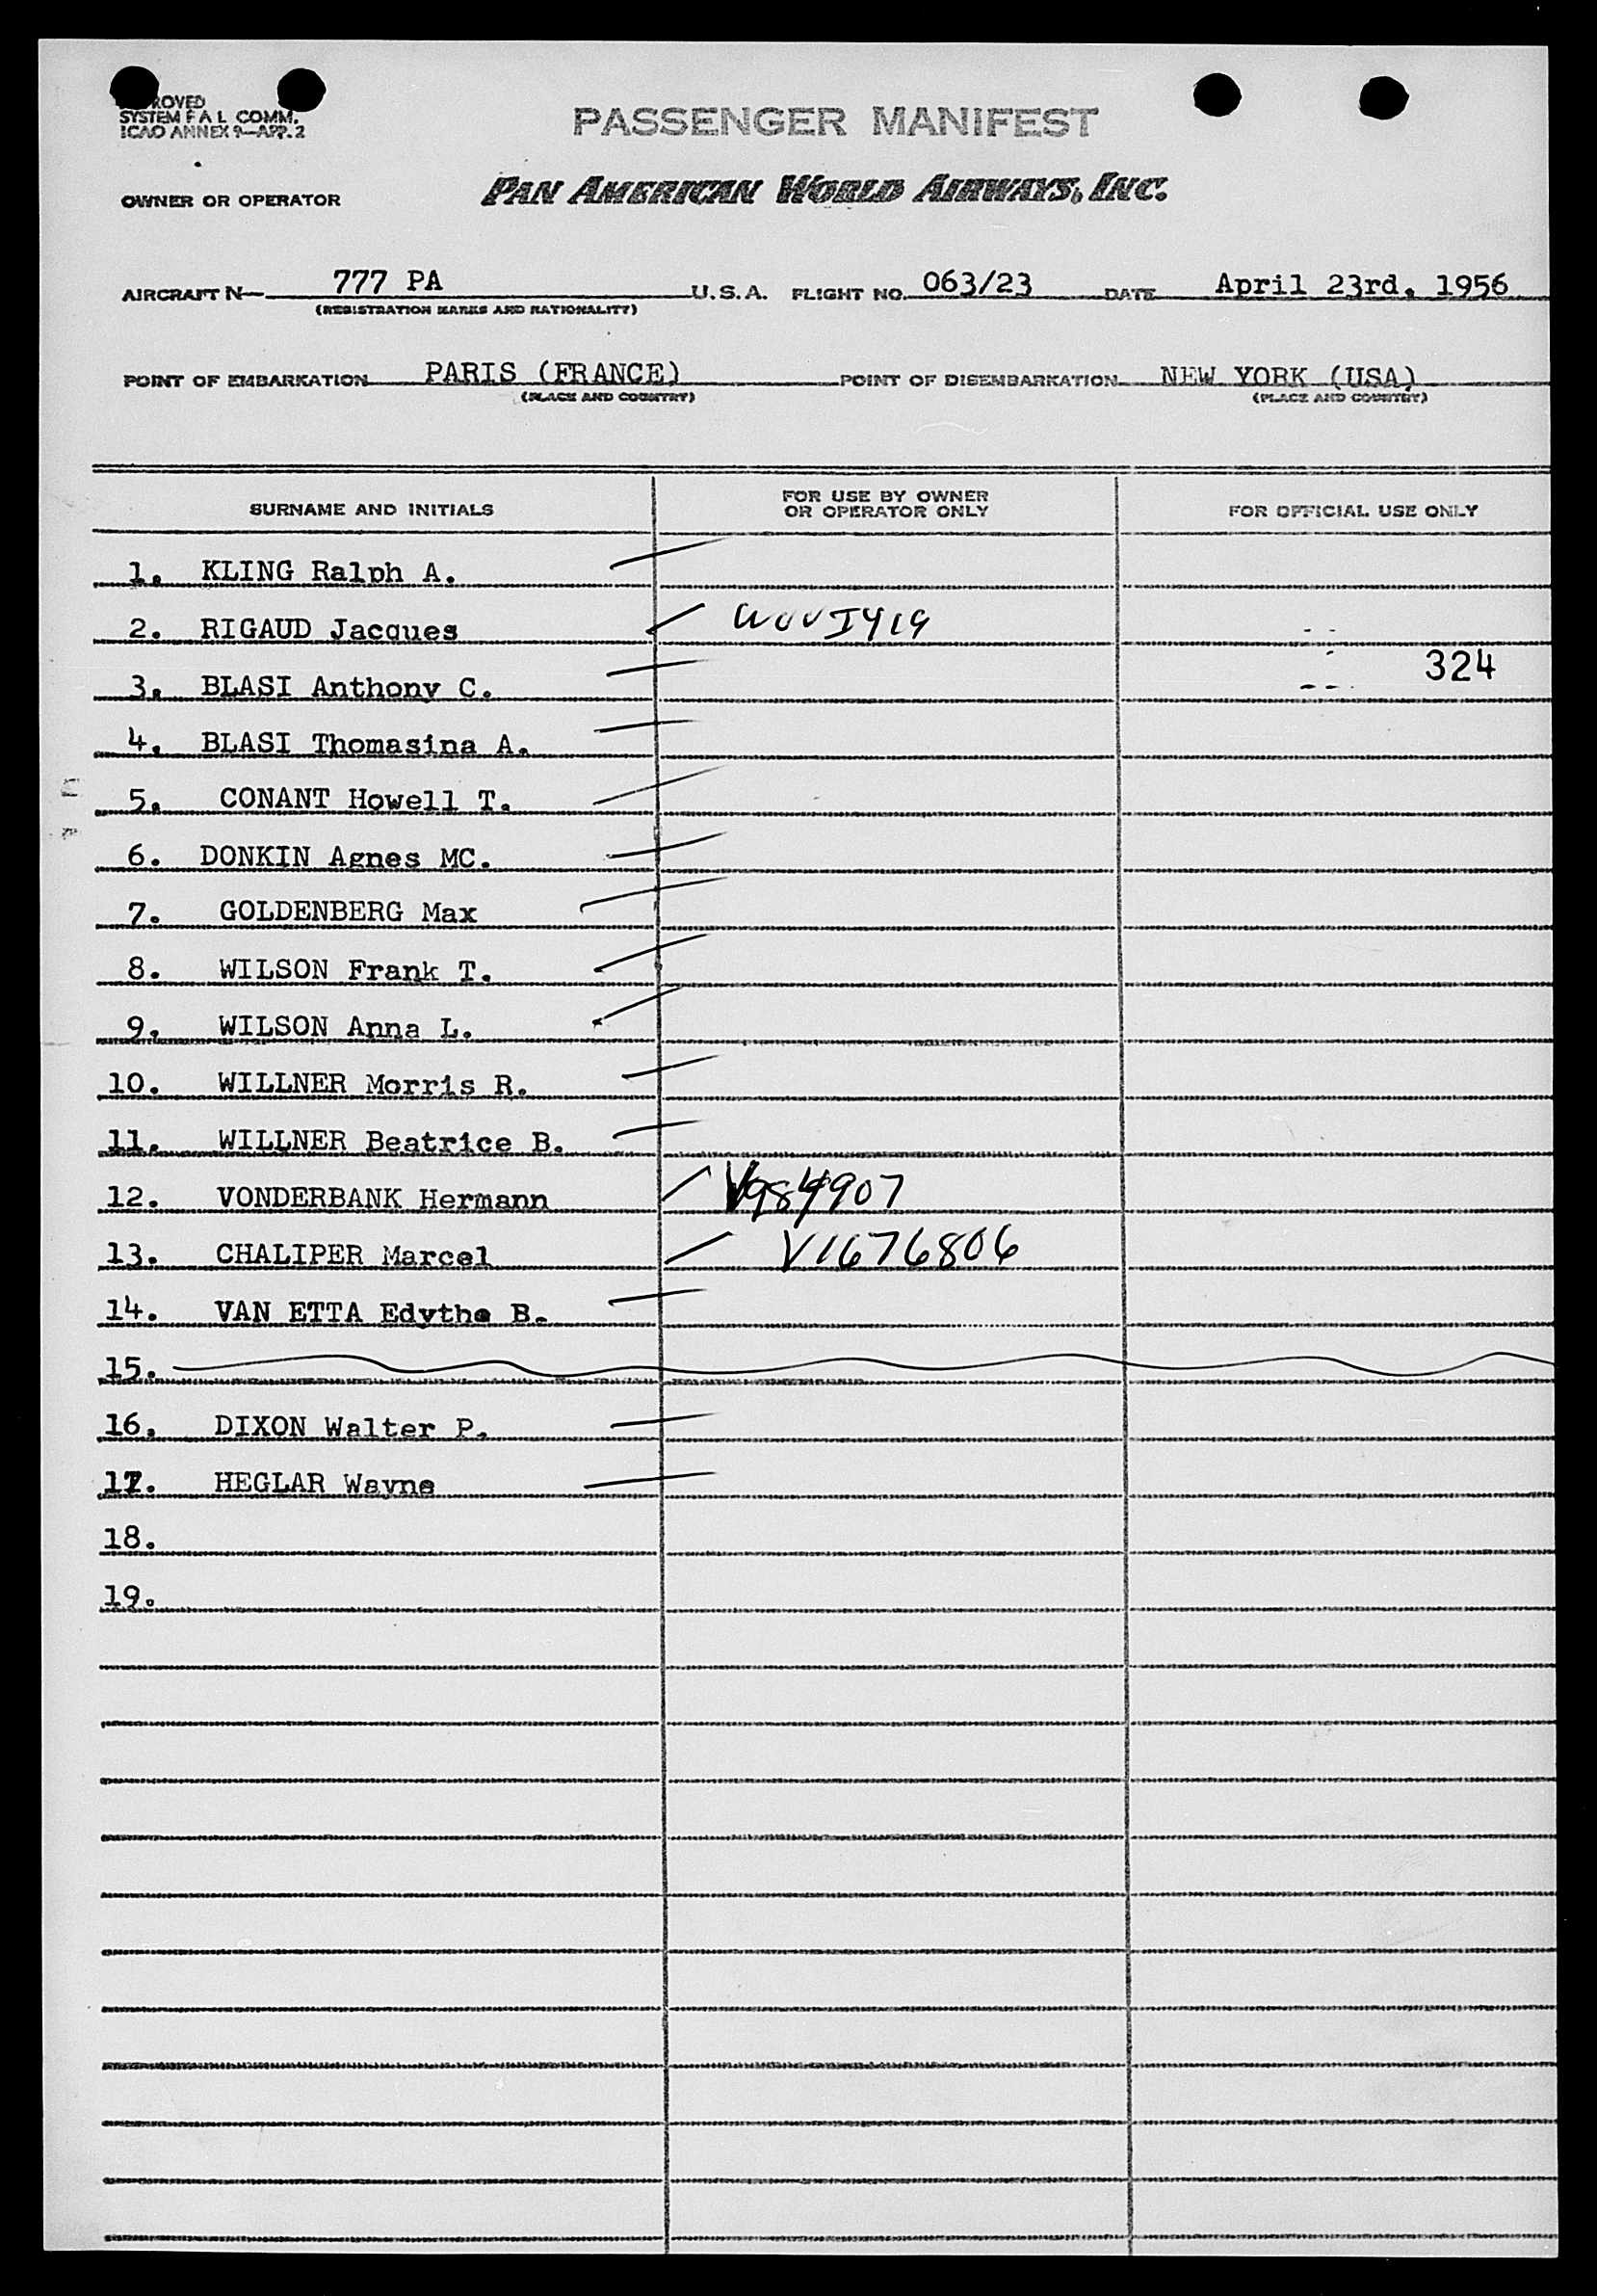 ROVED
SYSTEM F A L COMM.
ICAO ANNEX 9—APP. 2
PASSENGER MANIFEST
OWNER OR OPERATOR PAN AMERICAN WORLD AIRWAYS, INC.
AIRCRAFT N— 777 PA U.S.A. FLIGHT NO. 063/23 DATE April 23rd, 1956
(REGISTRATION MARKS AND NATIONALITY)
POINT OF EMBARKATION PARIS (FRANCE) POINT OF DISEMBARKATION NEW YORK (USA)
(PLACE AND COUNTRY) (PLACE AND COUNTRY)
SURNAME AND INITIALS FOR USE BY OWNER OR OPERATOR ONLY FOR OFFICIAL USE ONLY
1. KLING Ralph A.
2. RIGAUD Jacques
324
3. BLASI Anthony C.
4. BLASI Thomasina A.
5. CONANT Howell T.
6. DONKIN Agnes MC.
7. GOLDENBERG Max
8. WILSON Frank T.
9. WILSON Anna L.
10. WILLNER Morris R.
11. WILLNER Beatrice B.
12. VONDERBANK Hermann V984907
13. CHALIPER Marcel V1676806
14. VAN ETTA Edythe B.
15.
16. DIXON Walter P.
17. HEGLAR Wayne
18.
19.